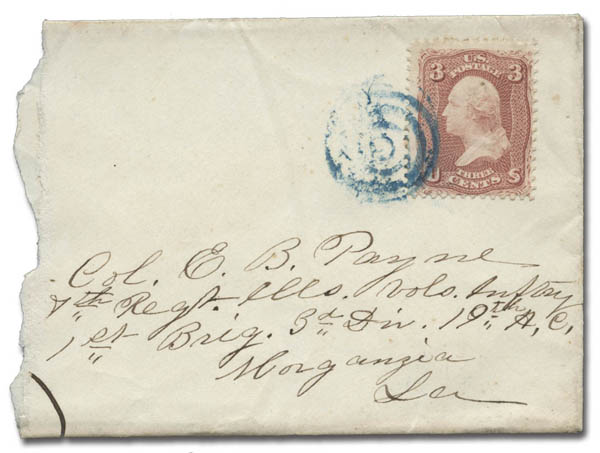 3 U.S. POSTAGE 3
U THREE CENTS S
Col. E. B. Payne
Regt. Ills. Vols. Inftay
1st Brig. 3d Div. 19th A. C.
Morganzia
La